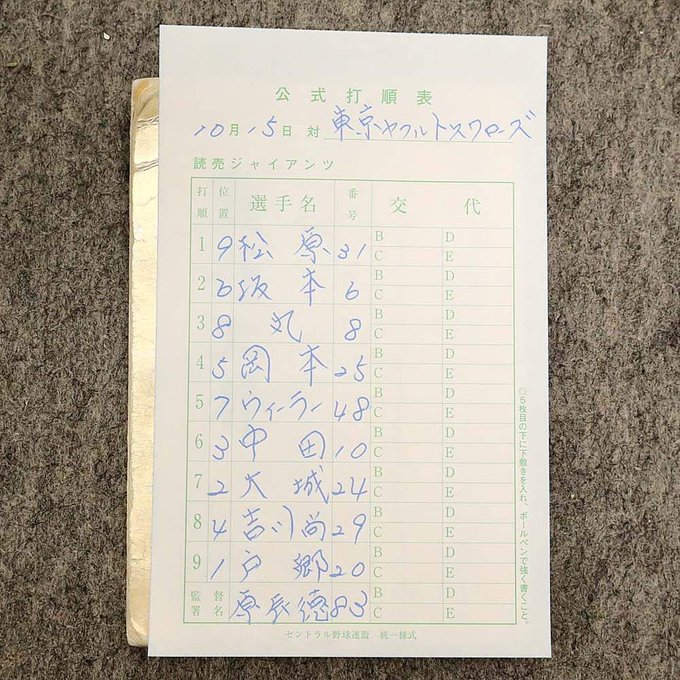 公式打順表
10月15日 対 東京ヤクルトスワローズ
読売ジャイアンツ
打順 位置 選手名 番号 交代
1 9 松原 31 B D C E
2 6 坂本 6 B D C E
3 8 丸 8 B D C E
4 5 岡本 25 B D C E
5 7 ウィーラー 48 B D C E
6 3 中田 10 B D C E
7 2 大城 24 B D C E
8 4 吉川尚 29 B D C E
9 1 戸郷 20 B D C E
監督署名 原辰徳 83 B D C E
セントラル野球連盟 統一様式
◎5枚目の下に下敷きを入れ、ボールペンで強く書くこと。